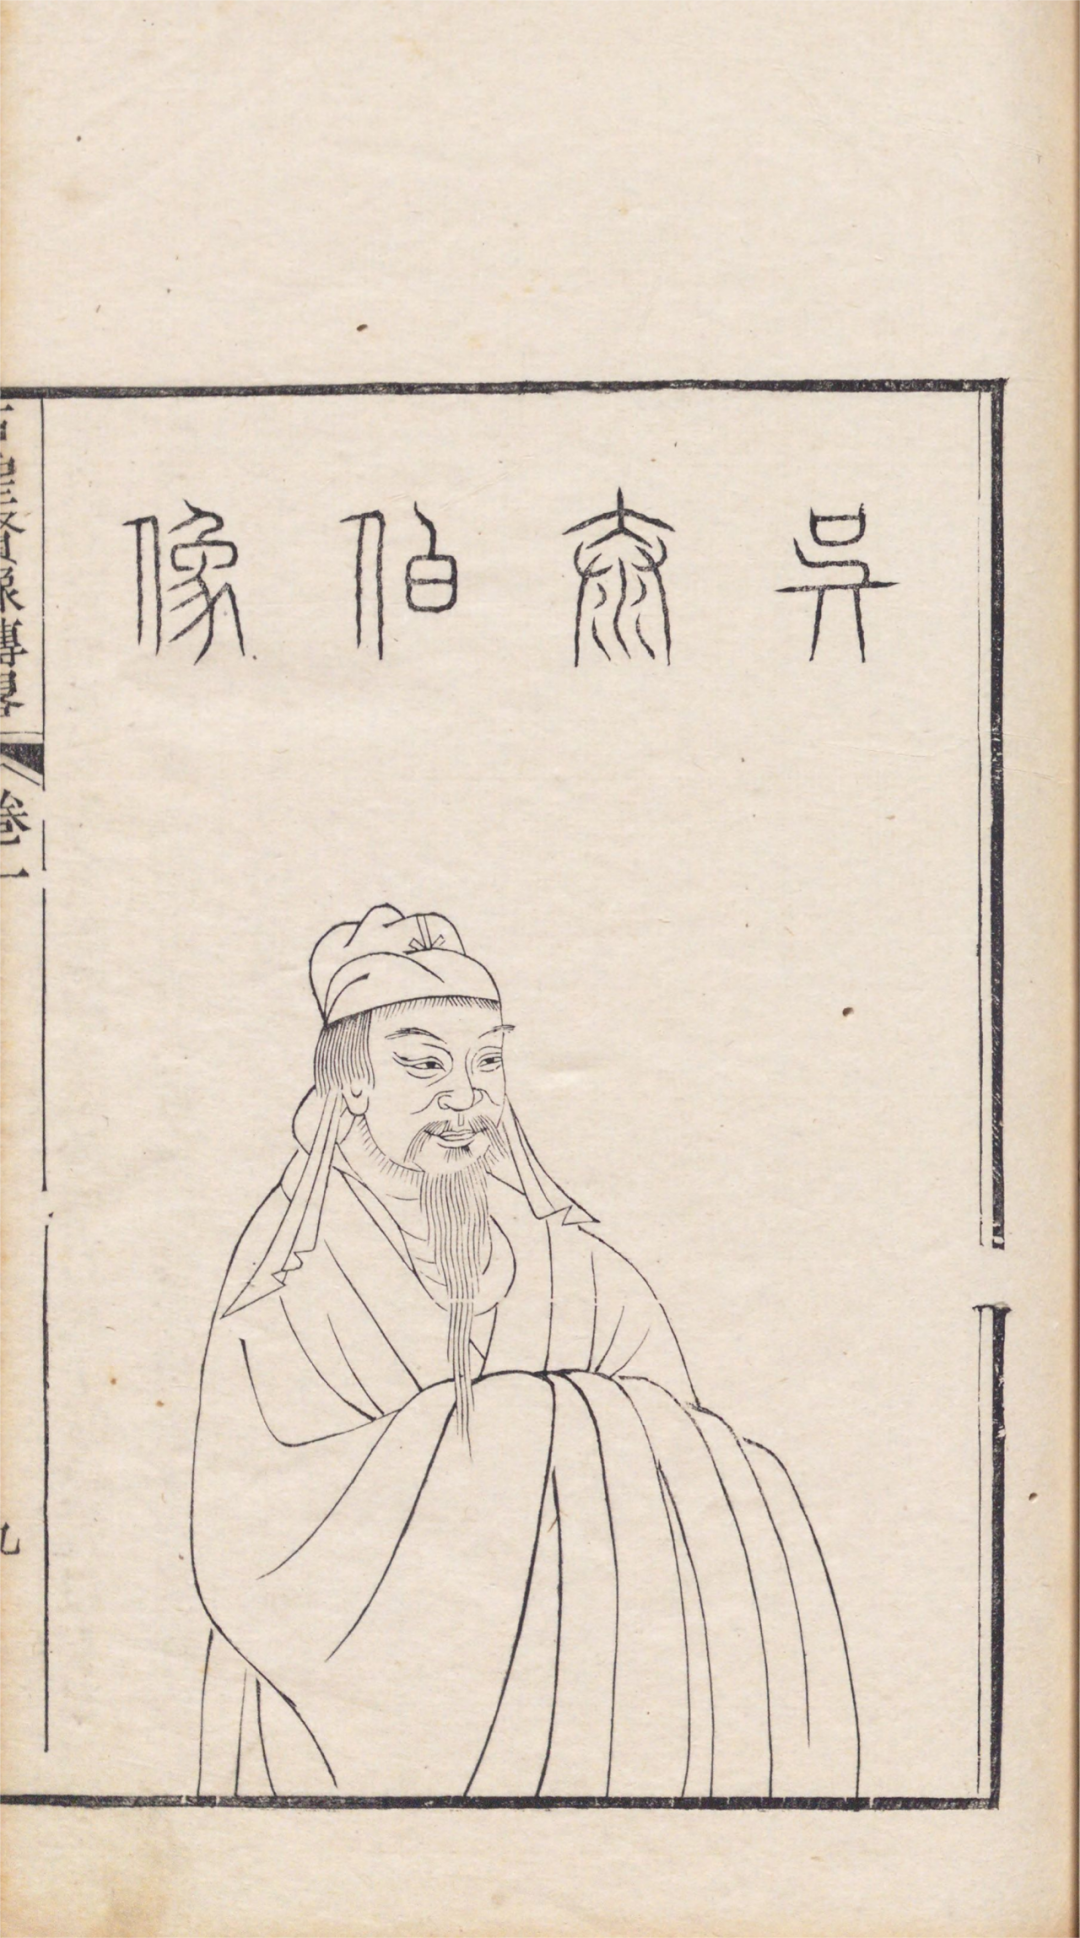 吳泰伯像
古聖賢像傳略
卷一
九